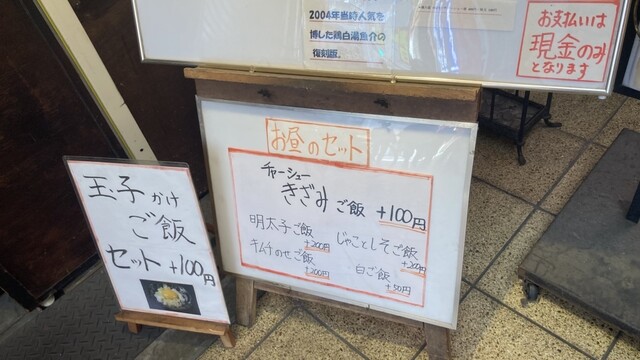 2004年当時人気を
博した鶏白湯魚介の
復刻版。
お支払いは
現金のみ
となります
お昼のセット
チャーシュー
きざみご飯 +100円
明太子ご飯
+200円
じゃことしそご飯
+200円
キムチのせご飯
+200円
白ご飯
+50円
玉子かけ
ご飯
セット +100円